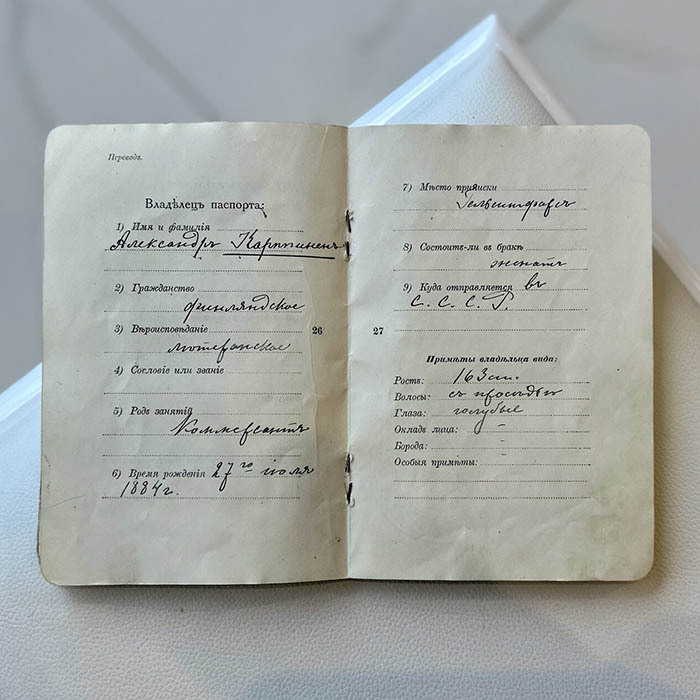 Переводъ.
Владѣлецъ паспорта:
1) Имя и фамилія
Александръ Карппиненъ
2) Гражданство
финляндское
3) Вѣроисповѣданіе
лютеранское
4) Сословіе или званіе
5) Родъ занятій
Коммерсантъ
6) Время рожденія 27го іюля
1884 г.
26
7) Мѣсто приписки
Гельсингфорсъ
8) Состоитъ-ли въ бракѣ
женатъ
9) Куда отправляется въ
С. С. С. Р.
27
Примѣты владѣльца вида:
Ростъ: 163 см.
Волосы: съ просѣдью
Глаза: голубые
Окладъ лица: -
Борода: -
Особыя примѣты: -